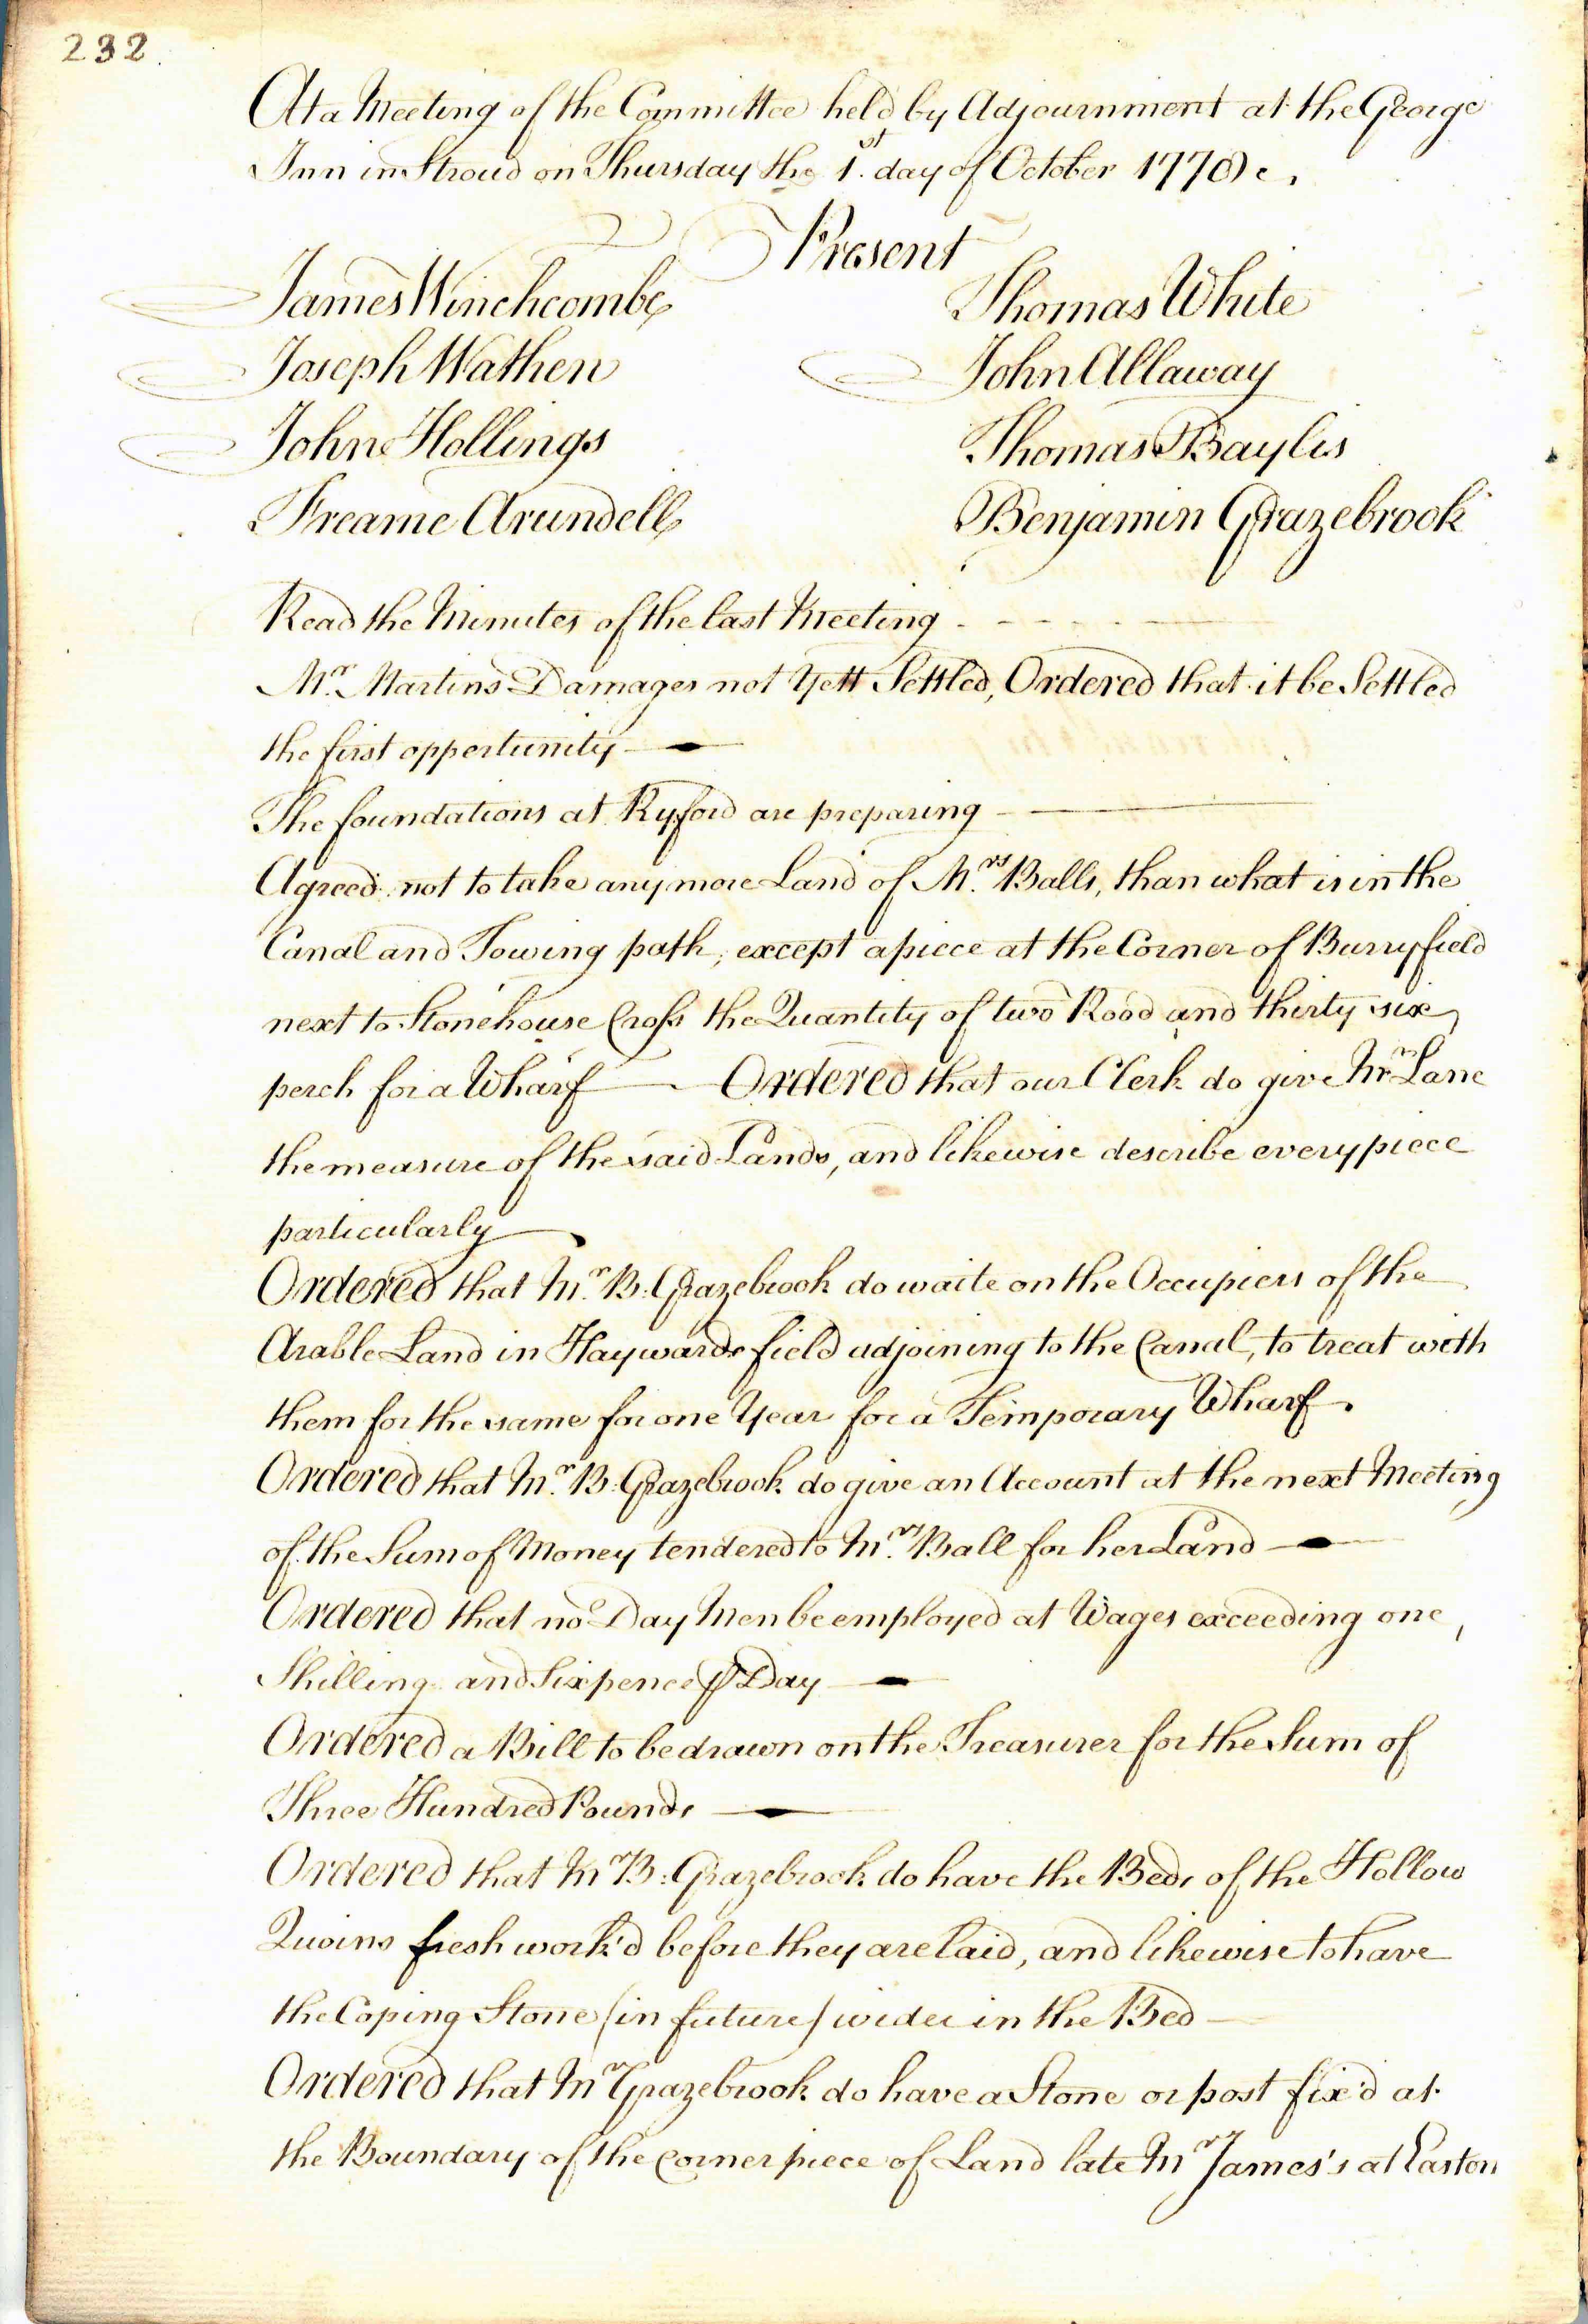 232
At a Meeting of the Committee held by Adjournment at the George
Inn in Stroud on Thursday the 1st. day of October 1778.
Present
James Winchcombe
Thomas White
Joseph Wathen
John Allaway
John Hollings
Thomas Baylis
Freame Arundell
Benjamin Grazebrook
Read the Minutes of the last Meeting
Mr. Martins Damages not Yett Settled, Ordered that it be Settled
the first opportunity
The foundations at Ryford are preparing
Agreed not to take any more Land of Mrs. Balls, than what is in the
Canal and Towing path, except a piece at the Corner of Burryfield
next to Stonehouse Cross the Quantity of two Rood and thirty six
perch for a Wharf Ordered that our Clerk do give Mr Lane
the measure of the said Lands, and likewise describe every piece
particularly
Ordered that Mr. B: Grazebrook do waite on the Occupiers of the
Arable Land in Haywards field adjoining to the Canal, to treat with
them for the same for one Year for a Temporary Wharf.
Ordered that Mr. B: Grazebrook do give an Account at the next Meeting
of the Sum of Money tendered to Mrs. Ball for her Land
Ordered that no Day Men be employed at Wages exceeding one
Shilling and Sixpence ⅌ Day
Ordered a Bill to be drawn on the Treasurer for the Sum of
Three Hundred Pounds
Ordered that Mr B: Grazebrook do have the Beds of the Hollow
Quoins fresh work'd before they are laid, and likewise to have
the Coping Stone (in future) wider in the Bed
Ordered that Mr Grazebrook do have a Stone or post fix'd at
the Boundary of the corner piece of Land late Mr James's at Easton